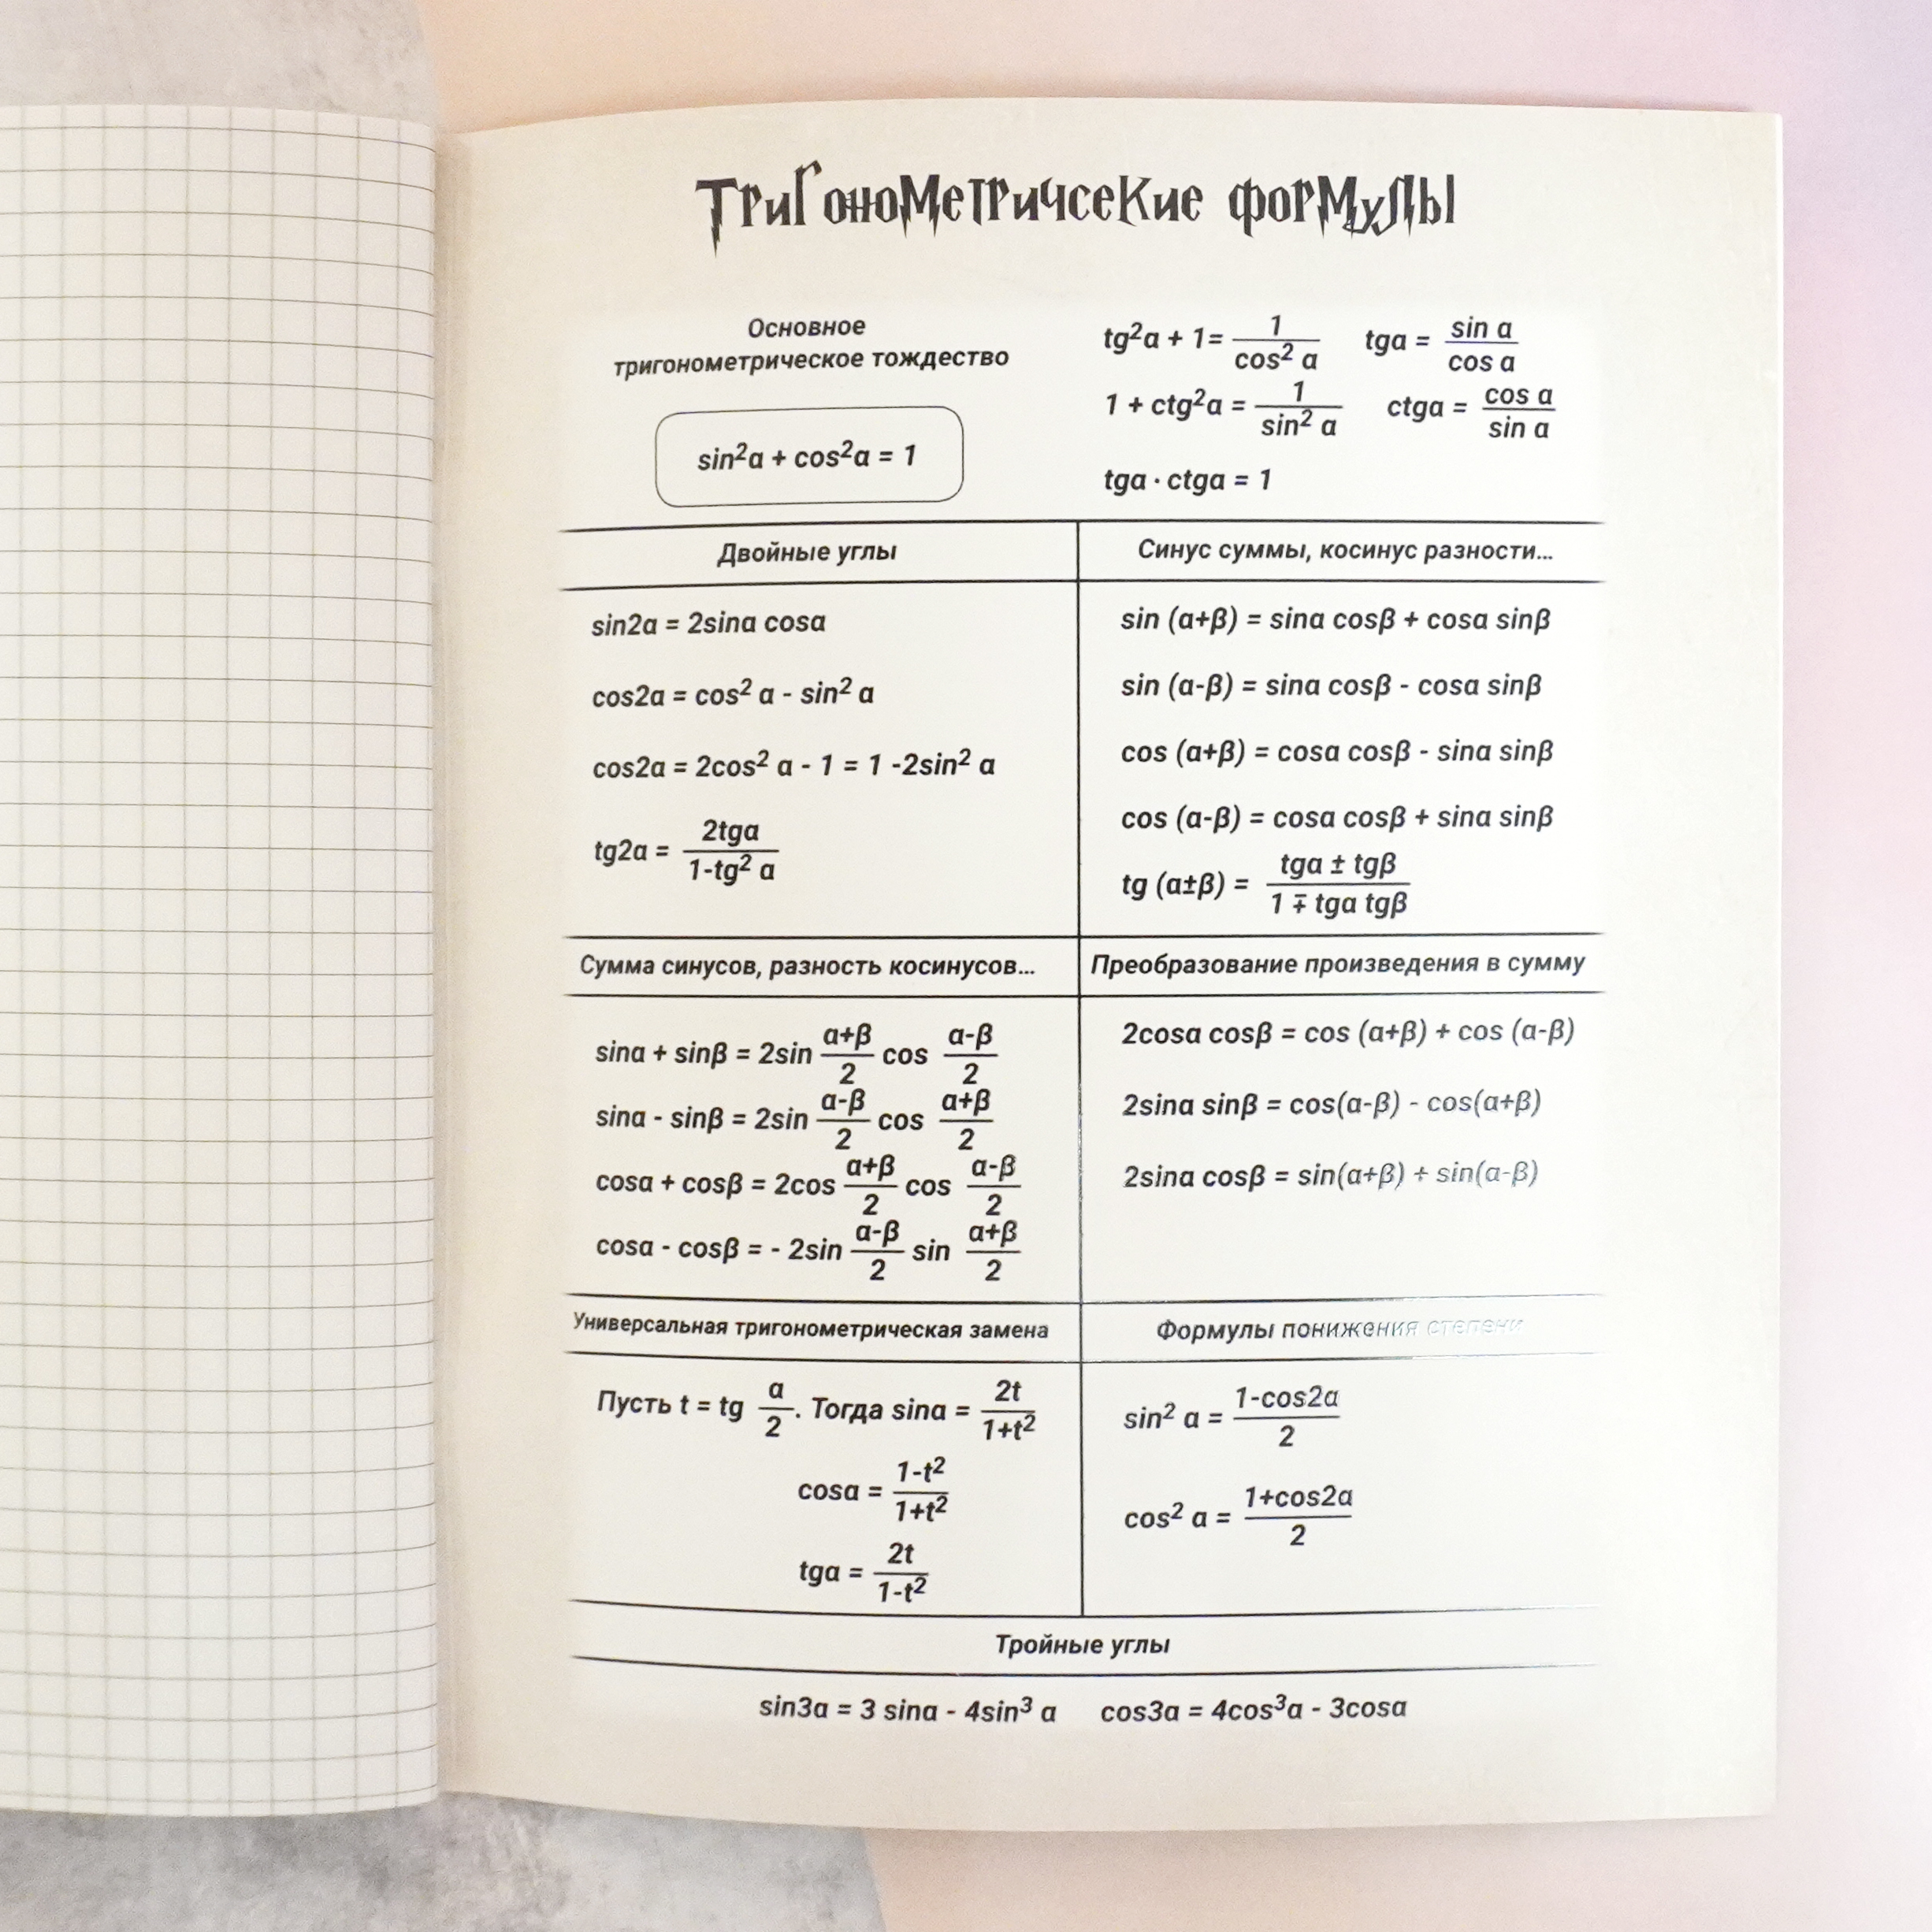 Тригонометричсекие формулы
Основное
тригонометрическое тождество
sin²α + cos²α = 1
tg²α + 1 = 1/cos² α   tgα = sin α/cos α
1 + ctg²α = 1/sin² α   ctgα = cos α/sin α
tgα · ctgα = 1
Двойные углы
sin2α = 2sinα cosα
cos2α = cos² α - sin² α
cos2α = 2cos² α - 1 = 1 -2sin² α
tg2α = 2tgα/1-tg² α
Синус суммы, косинус разности...
sin (α+β) = sinα cosβ + cosα sinβ
sin (α-β) = sinα cosβ - cosα sinβ
cos (α+β) = cosα cosβ - sinα sinβ
cos (α-β) = cosα cosβ + sinα sinβ
tg (α±β) = tgα ± tgβ/1 ∓ tgα tgβ
Сумма синусов, разность косинусов...
sinα + sinβ = 2sin α+β/2 cos α-β/2
sinα - sinβ = 2sin α-β/2 cos α+β/2
cosα + cosβ = 2cos α+β/2 cos α-β/2
cosα - cosβ = - 2sin α-β/2 sin α+β/2
Преобразование произведения в сумму
2cosα cosβ = cos (α+β) + cos (α-β)
2sinα sinβ = cos(α-β) - cos(α+β)
2sinα cosβ = sin(α+β) + sin(α-β)
Универсальная тригонометрическая замена
Пусть t = tg α/2. Тогда sinα = 2t/1+t²
cosα = 1-t²/1+t²
tgα = 2t/1-t²
Формулы понижения степени
sin² α = 1-cos2α/2
cos² α = 1+cos2α/2
Тройные углы
sin3α = 3 sinα - 4sin³ α   cos3α = 4cos³α - 3cosα